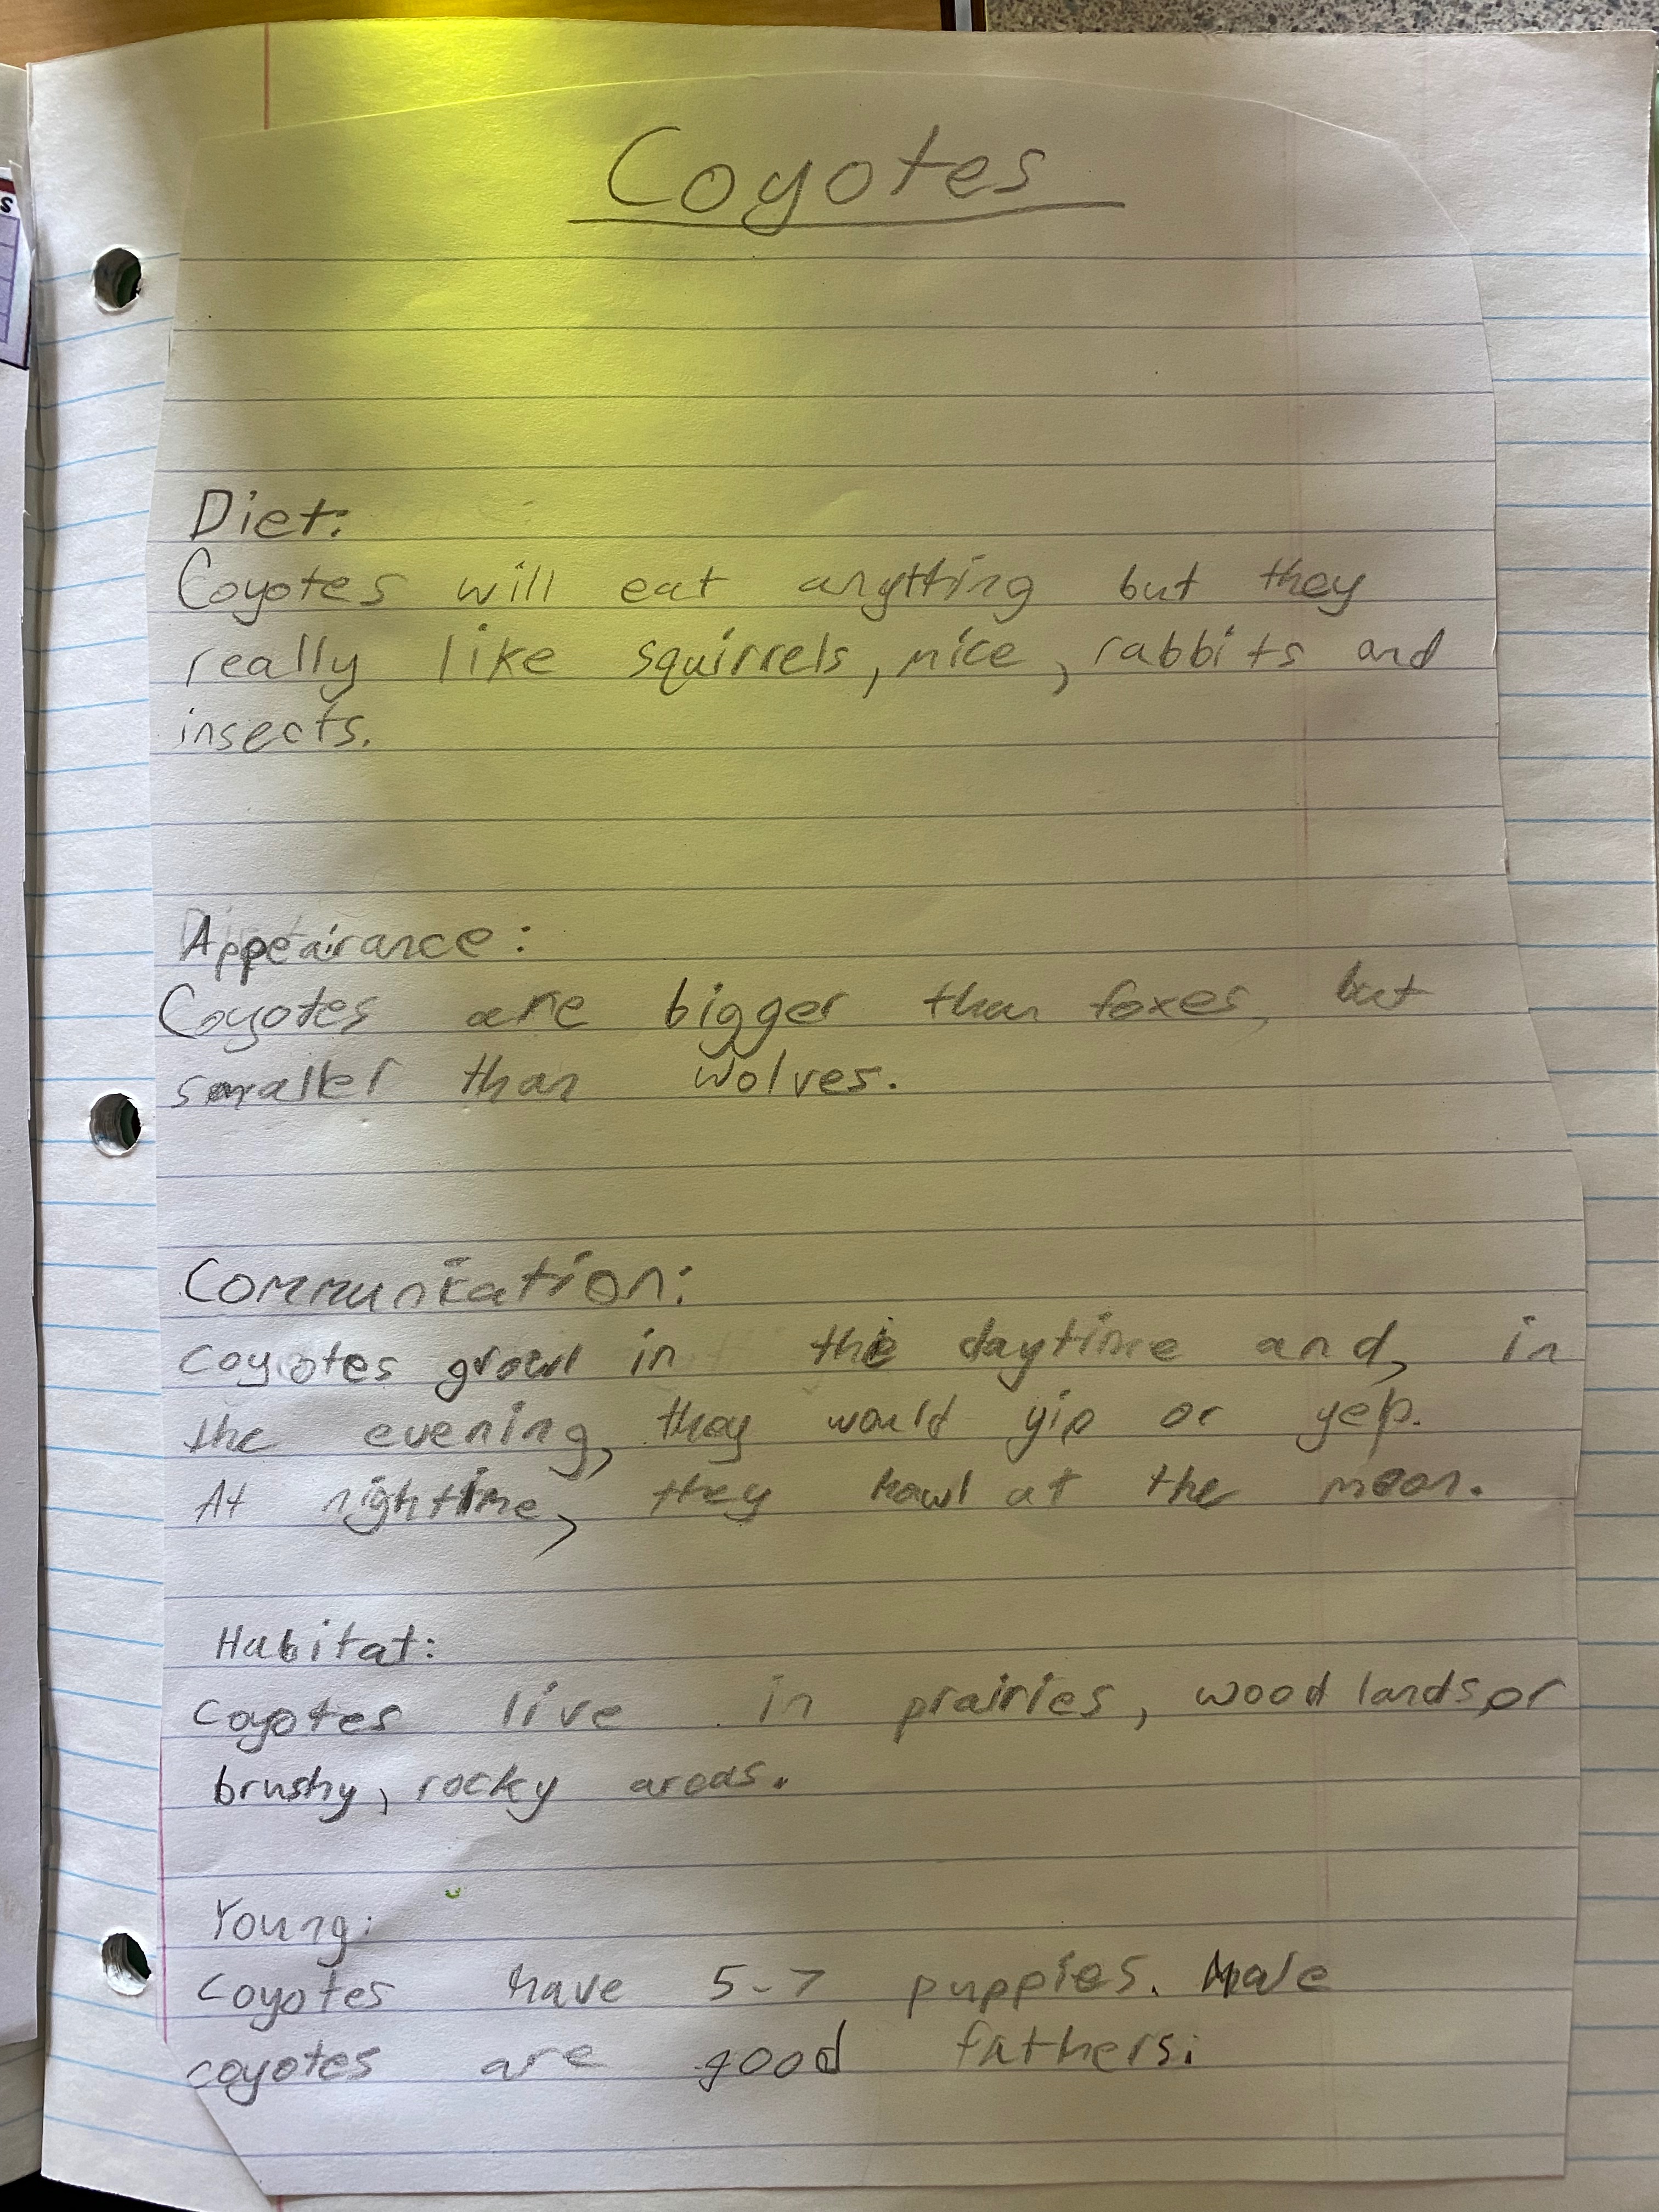 S
Coyotes
Diet:
Coyotes will eat anything but they
really like squirrels, mice, rabbits and
insects.
Appearance:
Coyotes are bigger than foxes, but
smaller than wolves.
Communication:
coyotes growl in the daytime and, in
the evening, they would yip or yep.
At nightime, they howl at the moon.
Habitat:
coyotes live in prairies, woodlands, or
brushy, rocky areas.
Young:
coyotes have 5-7 puppies. Male
coyotes are good fathers.